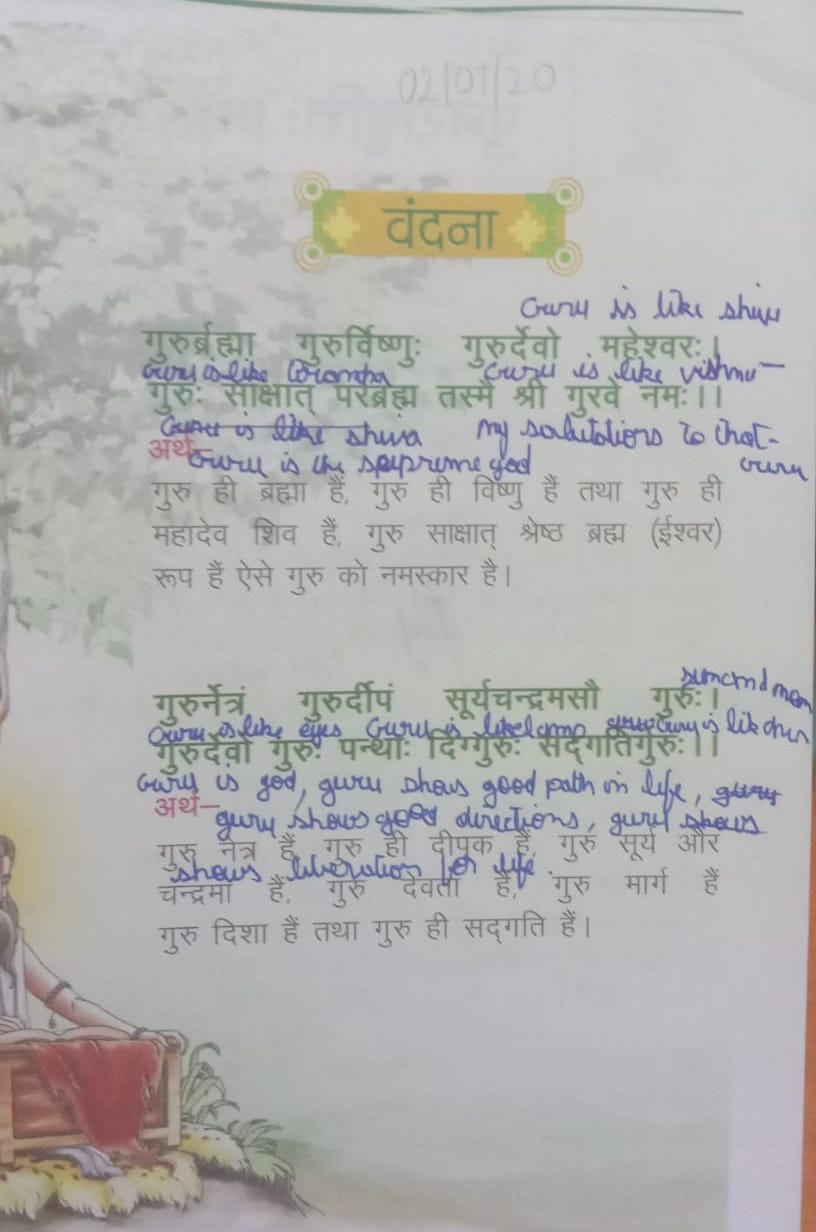 02/07/20
वंदना
Guru is like shiva
गुरुर्ब्रह्मा गुरुर्विष्णुः गुरुर्देवो महेश्वरः।
Guru is like Bramha Guru is like vishnu
गुरुः साक्षात् परब्रह्म तस्मै श्री गुरवे नमः।।
Guru is like shiva My salutations to that-
अर्थ– Guru is the supreme god guru
गुरु ही ब्रह्मा हैं, गुरु ही विष्णु हैं तथा गुरु ही
महादेव शिव हैं, गुरु साक्षात् श्रेष्ठ ब्रह्म (ईश्वर)
रूप हैं ऐसे गुरु को नमस्कार है।
sun and moon
गुरुर्नेत्रं गुरुर्दीपं सूर्यचन्द्रमसौ गुरुः।
Guru is like eyes Guru is like lamp guru is like
गुरुदेवो गुरुः पन्थाः दिग्गुरुः सद्गतिर्गुरुः।।
Guru is god, guru shows good path in life, guru
अर्थ– guru shows good directions, guru shows
गुरु नेत्र हैं, गुरु ही दीपक हैं, गुरु सूर्य और
shows liberation for life.
चन्द्रमा हैं, गुरु देवता हैं, गुरु मार्ग हैं
गुरु दिशा हैं तथा गुरु ही सद्गति हैं।